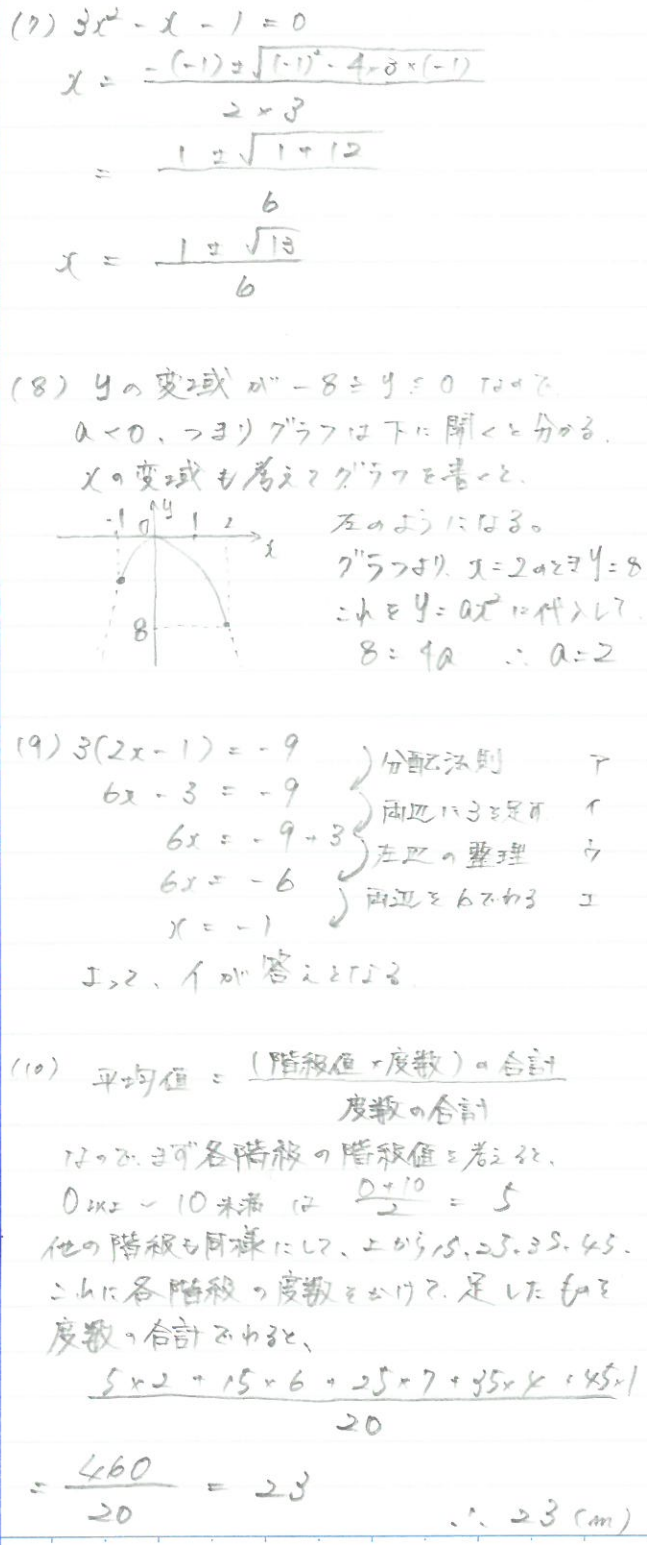 (7) 3x² - x - 1 = 0
x = -(-1) ± √(-1)² - 4×3×(-1) / 2 × 3
= 1 ± √1 + 12 / 6
x = 1 ± √13 / 6
(8) yの変域が -8 ≦ y ≦ 0 なので
a < 0、つまりグラフは下に開くと分かる.
xの変域も考えてグラフを書くと.
-1 0 y 1 2 x
8
左のようになる。
グラフより. x = 2のときy = 8
これを y = ax² に代入して
8 = 4a ∴ a = 2
(9) 3(2x - 1) = -9 分配法則 ア
6x - 3 = -9 両辺に3を足す イ
6x = -9 + 3 左辺の整理 ウ
6x = -6 両辺を6でわる エ
x = -1
よって、イが答えとなる
(10) 平均値 = (階級値×度数)の合計 / 度数の合計
なので.まず各階級の階級値を考えると、
0以上 ~ 10未満 は 0+10 / 2 = 5
他の階級も同様にして、上から15、25、35、45.
これに各階級の度数をかけて.足したものを
度数の合計でわると、
5×2 + 15×6 + 25×7 + 35×4 + 45×1 / 20
= 460 / 20 = 23
∴ 23 (m)